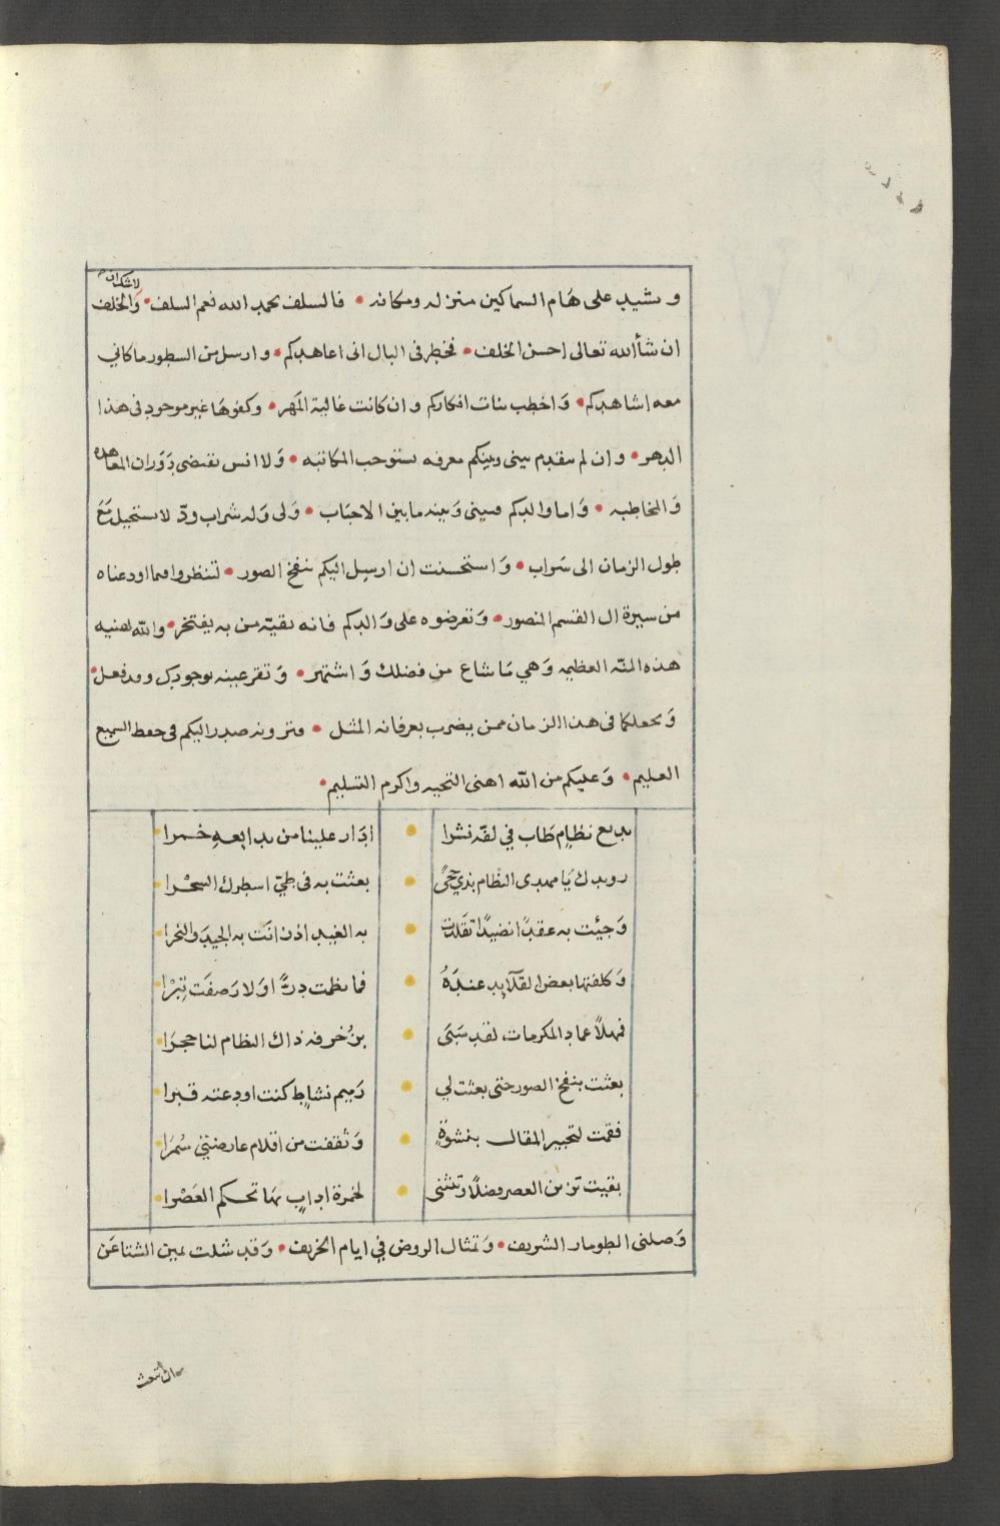 لا شك ان
وشيد على هَام السماكين منزله ومكانه • فالسلف بحمد الله نعم السلف • وَالخلف
ان شأ الله تعالى احسن الخلف • فخطر فى البال انى اعاهدكم • وارسل من السطور ما كاني
معه اشاهدكم • وَاخطب بنات افكاركم وان كانت غالية المَهر • وكفوهَا غير موجود فى هذا
الدهر • وان لم يتقدم بينى وبينكم معرفه تستوجب المكاتبه • وَلا انس يقتضى دَوَران المعاهده
وَالمخاطبه • وَاما والدكم فبينى وَبينه ما بين الاحبَاب • وَلى وَله شراب ودّ لا يستحيل مَعَ
طول الزمان الى سَراب • وَاستحسنت ان ارسل اليكم بنفخ الصور • لتنظروا فيما اودعناه
من سيرة ال القسم المنصور • وَتعرضوه على وَالدكم فانه بقيّة من به يفتخر • والله يهنيه
هذه المنّه العظيمه وَهي مَا شاع من فضلك وَاشتهر • وَتقر عينه بوجودك وقد فعل •
وَيجعلكما فى هذا الزمان ممن يضرب بعرفانه المثل • وتزونه صدر اليكم فى حفظ السميع
العليم • وَعليكم من الله اهنى التحيه واكرم التسليم •
بديع نظام طَاب في لفّه نشرا • ادَار علينا من بدايعهِ خمرا
رويدك يَا مهدى النظام بذي حجًى • بعثت به فى طيّ اسطرك السحْرا
وَجيئت به عقدًا نضيدًا تقَلدت • به الغيد اذ زانَت به الجيدَ والنحرا
وَكلفتها بعض القلَايد عندَهُ • فما نظمت درًّا وَلا رَصفَت تِبْرا
فهلاً عماد المكرمات لقد سَبَى • بزُخرفه ذاك النظام لنا حجرَا
بعثت بنفخ الصور حتى بعثت لي • رَميم نشاطٍ كنت اودعته قبرا
فقمت لتحبير المقال بنشوَةٍ • وَثقفت من اقلام عارضتي سُمرَا
بقيت تزين العصر فضلًا وتنثنى • لخمرة ادابٍ بهَا تحكم العَصْرا
وَصلنى الطومار الشريف • وَتمثال الروض في ايام الخريف • وَقد شلت يمين الشتا عَن